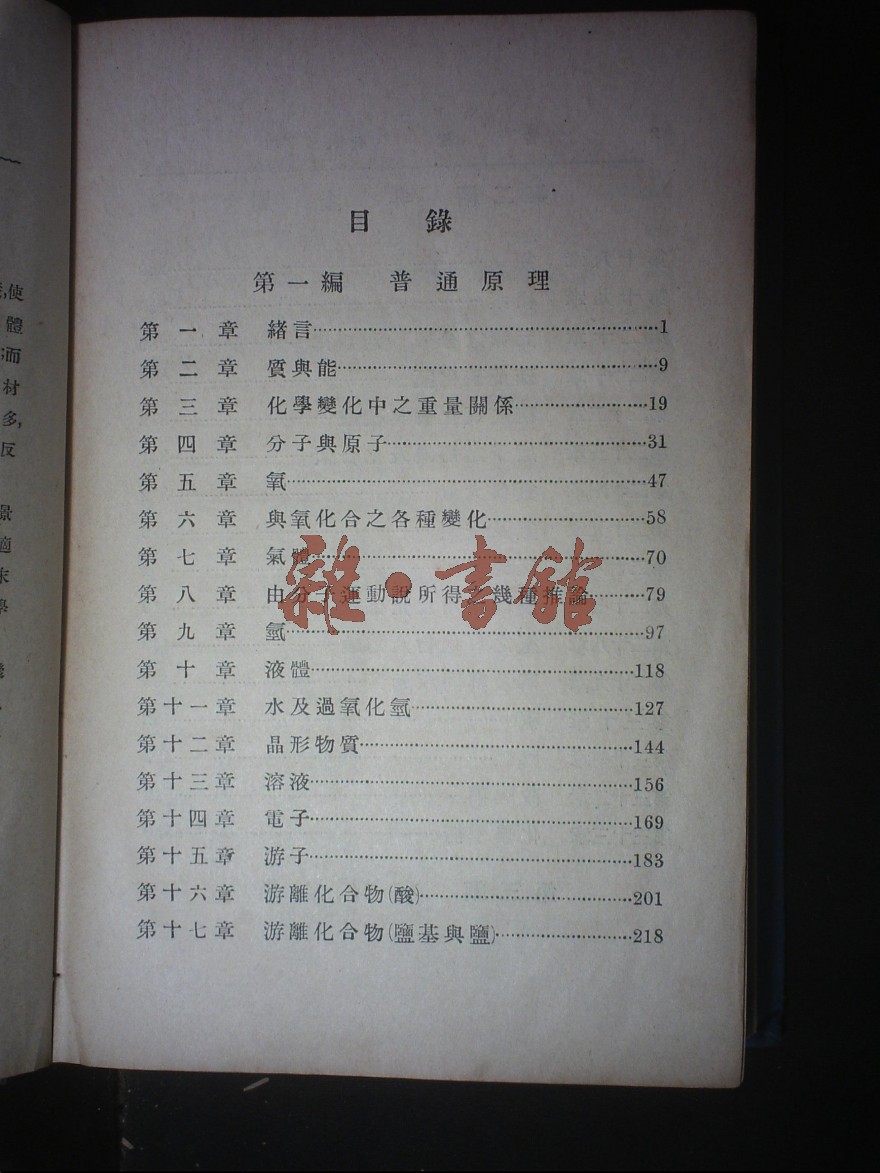 目錄
第一編 普通原理
第一章 緒言……1
第二章 質與能……9
第三章 化學變化中之重量關係……19
第四章 分子與原子……31
第五章 氧……47
第六章 與氧化合之各種變化……58
第七章 氣體……70
第八章 由分子運動說所得之幾種推論……79
第九章 氫……97
第十章 液體……118
第十一章 水及過氧化氫……127
第十二章 晶形物質……144
第十三章 溶液……156
第十四章 電子……169
第十五章 游子……183
第十六章 游離化合物(酸)……201
第十七章 游離化合物(鹽基與鹽)……218
雜·書館
使
體
而
材
多,
反
景
適
學